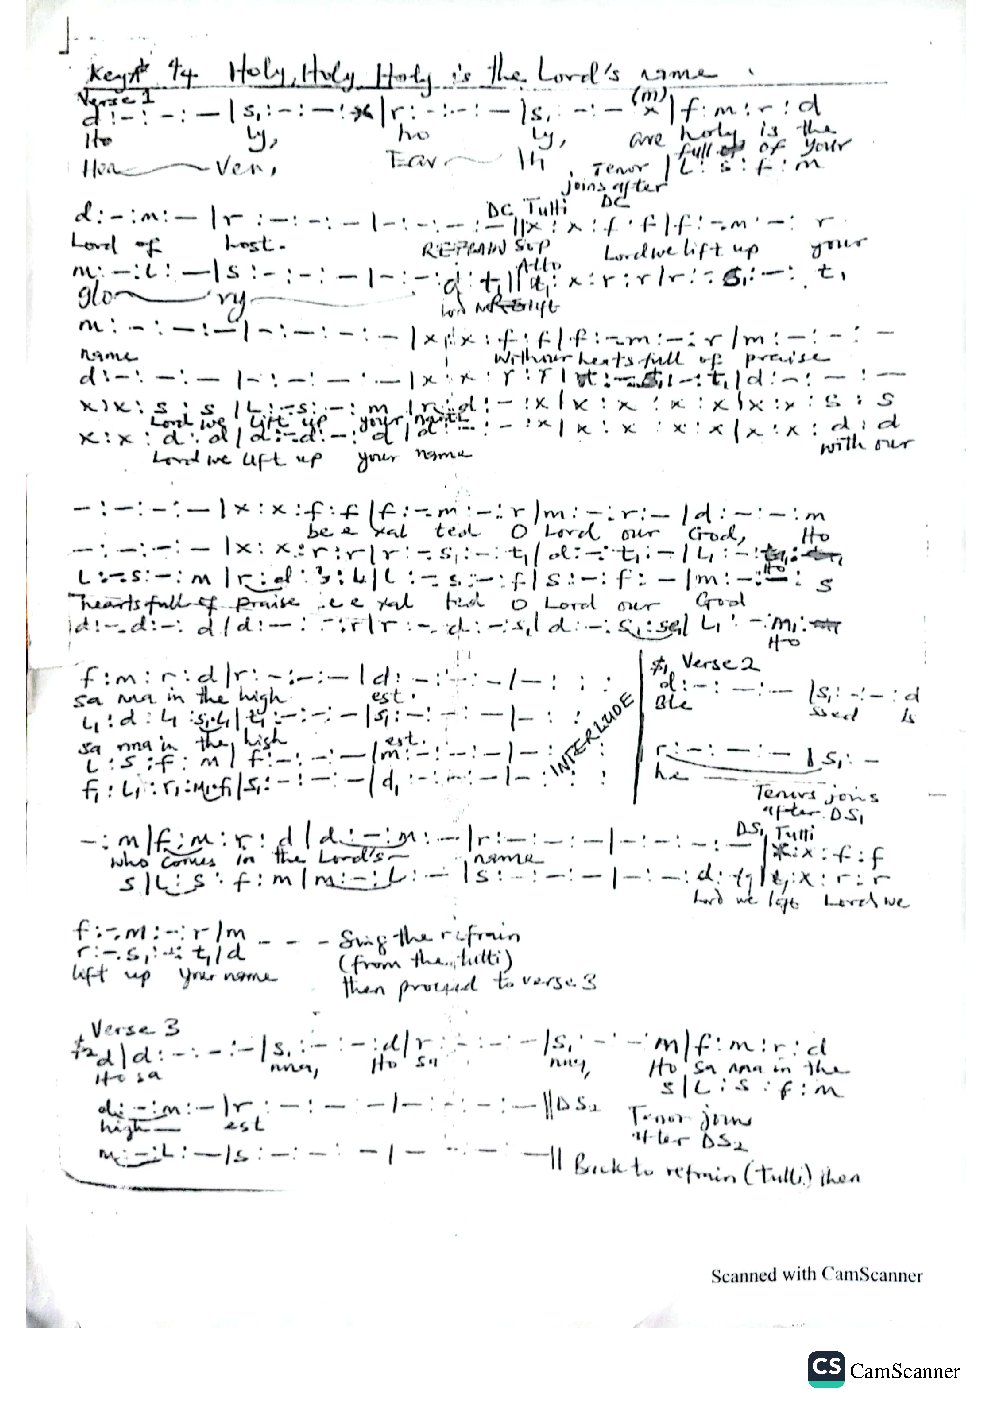 Key A♭ 4/4 Holy, Holy Holy is the Lord's name.
Verse 1
d :-:-:- | s₁ :-:-:x | r :-:-:- | s₁ :-:-:x (m) | f : m : r : d
Ho ly, ho ly, are holy is the
Hea ven, Ear th full of your
Tenor joins after DC | L : s : f : m
d :-: m :- | r :-:-:- | -:-:-:- || x : x : f : f | f :-. m :-: r
DC Tutti
Lord of host. REFRAIN SOP Lord we lift up your
m :-: L :- | s :-:-:- | -:-: d : t₁ || t₁ : x : r : r | r :-. s₁ :-: t₁
Alto
glo ry lord we lift
m :-:-:- | -:-:-:- | x : x : f : f | f :-. m :-: r | m :-:-:-
name with our hearts full of praise
d :-:-:- | -:-:-:- | x : x : r : r | r :-. s₁ :-: t₁ | d :-:-:-
x : x : s : s | L :-. s :-: m | r : d :-: x | x : x : x : x | x : x : s : s
Lord we lift up your name
x : x : d : d | d :-. d :-: d | d :-:-: x | x : x : x : x | x : x : d : d
Lord we lift up your name with our
-:-:-:- | x : x : f : f | f :-. m :-: r | m :-: r :- | d :-:-: m
be e xal ted O Lord our God, Ho
-:-:-:- | x : x : r : r | r :-. s₁ :-: t₁ | d :-: t₁ :- | L₁ :-
Ho
L :-. s :-: m | r : d : : L | L :-. s :-: f | s :-: f :- | m :-:-: s
hearts full of praise e xal ted O Lord our God
d :-. d :-: d | d :-:-: r | r :-. d :-: s₁ | d :-: s₁ : se₁ | L₁ :-: m₁
Ho
f : m : r : d | r :-:-:- | d :-:-:- | -:-: : :
sa nna in the high est.
L₁ : d : L₁ : s₁. L₁ | t₁ :-:-:- | s₁ :-:-:- | -:-: : :
sa nna in the high est.
L : s : f : m | f :-:-:- | m :-:-:- | -:-: : :
f₁ : L₁ : r₁ : m₁. f₁ | s₁ :-:-:- | d₁ :-:-:- | -:-: : :
INTERLUDE
$₁ Verse 2
d :-:-:- | s₁ :-:-: d
Ble ssed is
r :-:-:- | s₁ :-
he
Tenors joins
after DS₁
-: m | f : m : r : d | d :-: m :- | r :-:-:- | -:-:-:- || x : x : f : f
DS₁ Tutti
who comes in the Lord's name
s | L : s : f : m | m :-: L :- | s :-:-:- | -:-: d : t₁ | t₁ : x : r : r
Lord we lift Lord we
f :-. m :-: r | m - - - Sing the refrain
r :-. s₁ :-: t₁ | d (from the tutti)
lift up your name then proceed to verse 3
Verse 3
$₂ d | d :-:-:- | s₁ :-:-: d | r :-:-:- | s₁ :-:-: m | f : m : r : d
Ho sa nna, Ho sa nna, Ho sa nna in the
s | L : s : f : m
d :-: m :- | r :-:-:- | -:-:-:- || DS₂
high est
Tenor joins
after DS₂
m :-: L :- | s :-:-:- | -:-:-:- ||
Back to refrain (tutti) then
Scanned with CamScanner
CS CamScanner